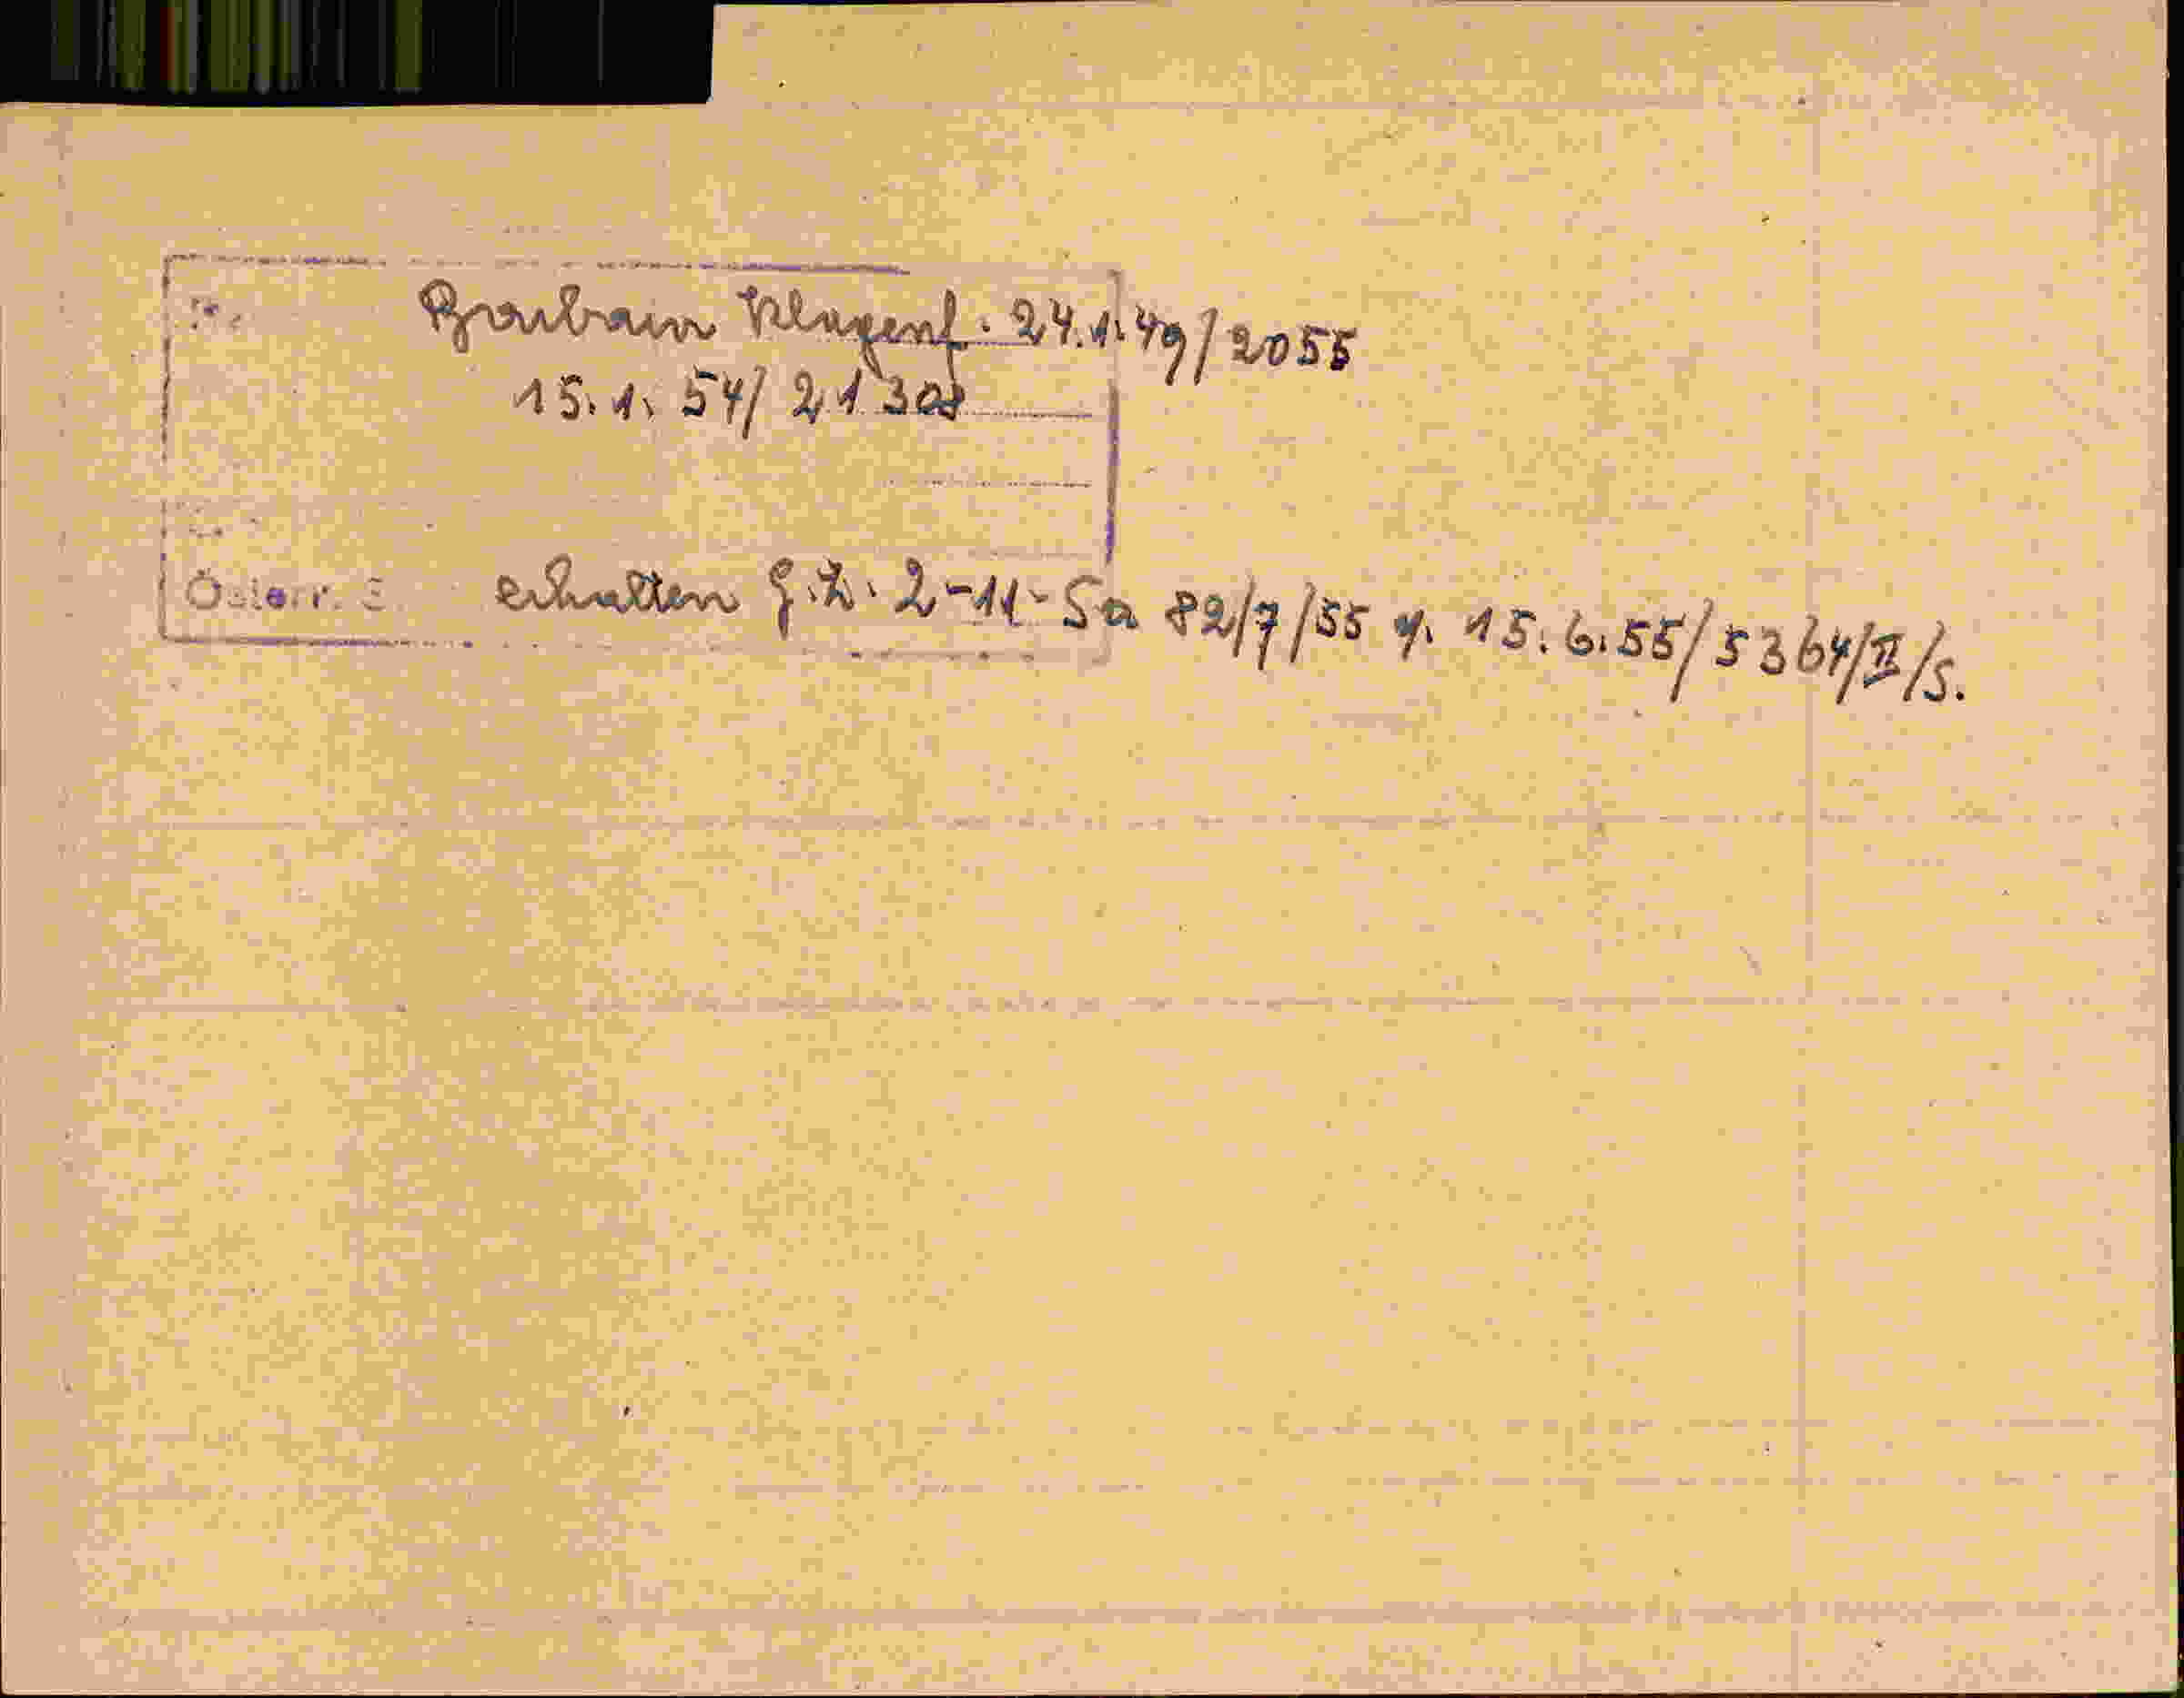 Klagenf. 24.1.49/2055
15.1.54/2130
Österr. erhalten G.Z. 2-11-Sa 82/7/55 v. 15.6.55/5364/II/S.